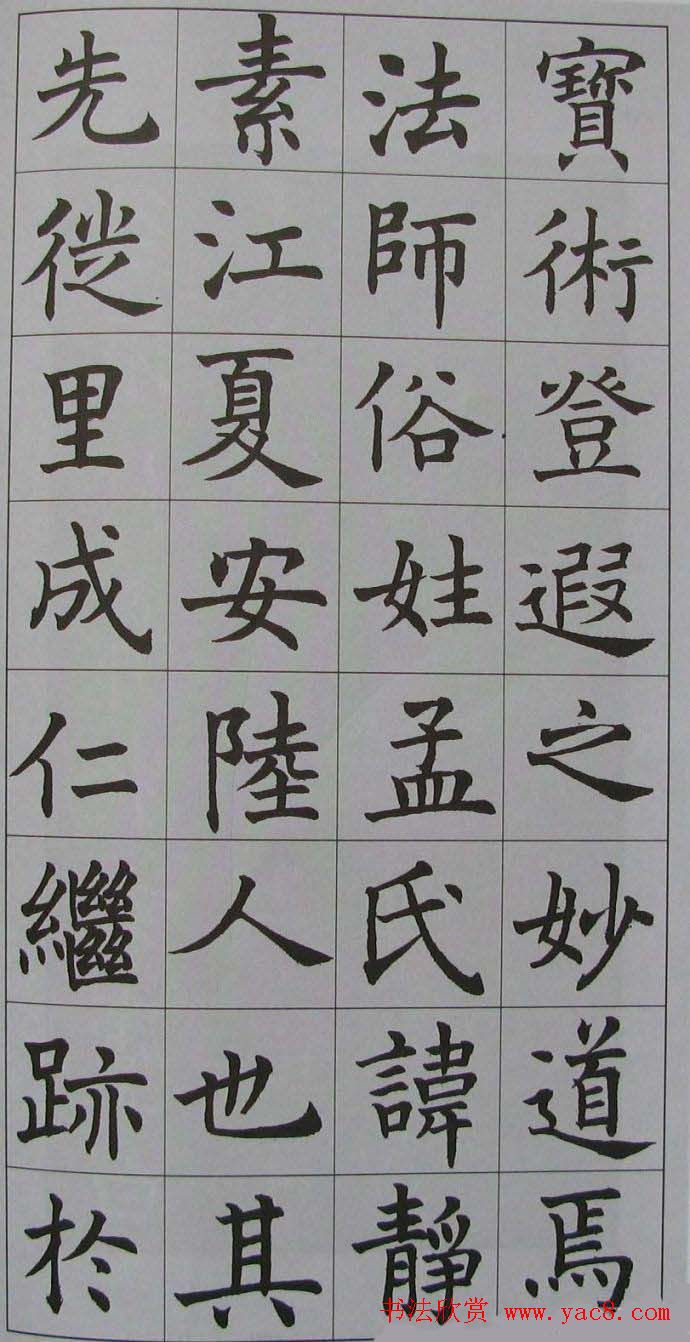 寶術登遐之妙道焉
法師俗姓孟氏諱靜
素江夏安陸人也其
先徙里成仁繼跡於
书法欣赏 www.yac8.com